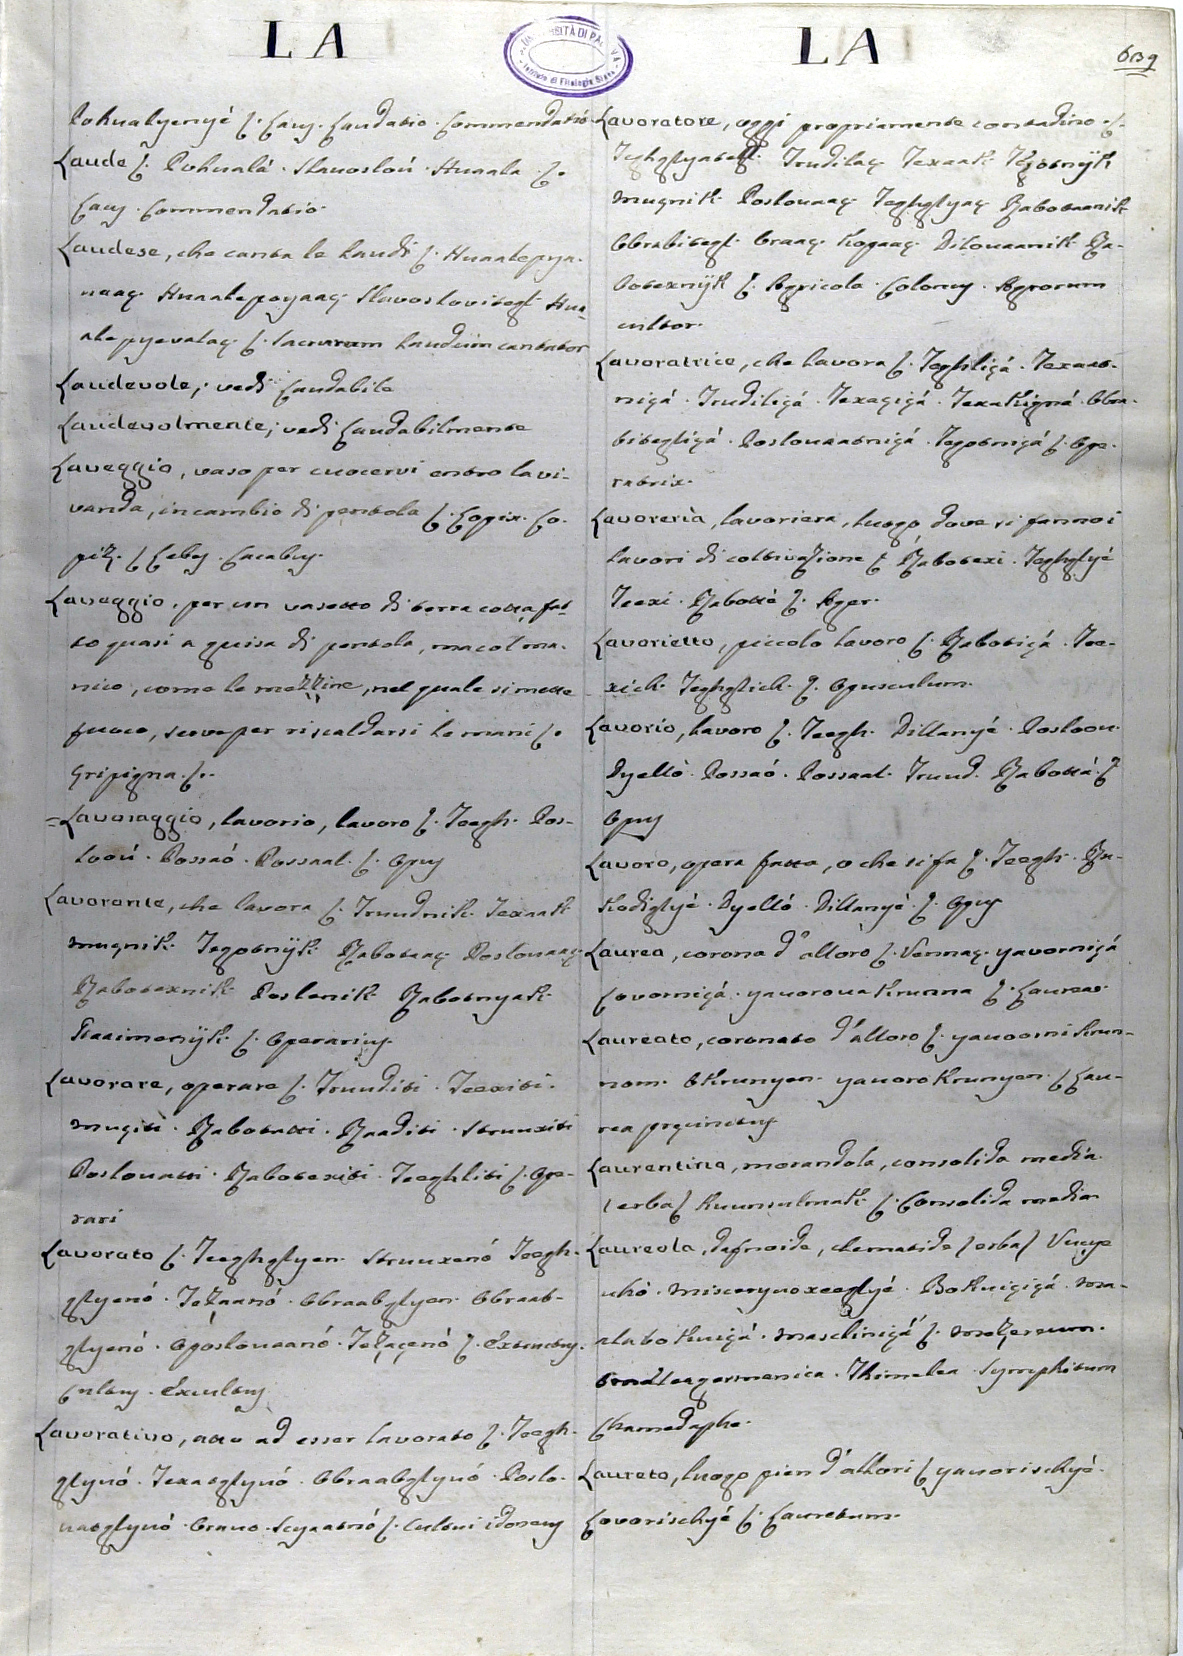 LA
LA
639
Pohvalyenyé Laus. Laudatio. Commendatio
Laude Pohvalá. Slavosloú. Huaala
Laus. Commendatio.
Laudese, che canta le Laudi Huaalepya-
uaaç. Huaalepoyaaç. Slavoslovitegl. Hua-
alepyevalaç. Sacrarum Laudum cantator
Laudevole, vedi Laudabile
Laudevolmente, vedi Laudabilmente
Laveggio, vaso per cuocervi entro la vi-
vanda, in cambio di pentola Lopix. Lo-
piz. Lebes. Cacabus.
Laveggio, per un vasetto di terra cotta, fat-
to quasi a guisa di pentola, ma col ma-
nico, come le mezzine, nel quale si mette
fuoco, serve per riscaldarsi le mani
Gripigna.
Lavoraggio, lavorio, lavoro Teegh. Pos-
loou. Possaó. Possaal. Opus
Lavorante, che lavora Truudnik. Texaak
muçnik. Tegotnijk. Rabotaaç. Poslouaaç
Rabotexnik. Poslenik. Rabotnyak.
Operarius.
Lavorare, operare Truuditi. Teexiti.
muçiti. Rabotatti. Raaditi. Struuxiti
Poslouatti. Rabotexiti. Teeghliti Ope-
rari
Lavorato Teeghglyen. Struuxenó Teegh-
glyenó. Obraabglyen. Obraab-
glyenó. Oposlouaanó.
Cultus. Excultus
Lavorativo, atto ad esser lavorato Teegh-
glyuó. Texaaglyuó. Obraabglyuó. Poslo-
uaoglyuó. Orauo. Cultui idoneus
Lavoratore, oggi propriamente contadino.
Trudilaç Texaak
muçnik. Poslouaaç Teghglyaç Rabotaanik
Obrabitegl. Oraaç. Kopaaç. Dilouaanik. Ra-
botexnijk Agricola. Colonus. Agrorum
cultor.
Lavoratrice, che lavora Teghliçá. Texaat-
niçá. Trudiliçá. Texaçiçá. Texakigná. Obra-
bitegliçá. Poslouaatniçá. Tegotniçá Ope-
ratrix.
Lavoreria, lavoriera, luogo dove si fanno i
lavori di coltivazione Rabotexi. Teghglyé
Teexi. Rabottá Ager.
Lavorietto, piccolo lavoro Rabotiçá. Tee-
xich. Teghglich. Opusculum.
Lavorio, lavoro Teegh. Dillanyé. Posloou.
Dyelló. Possaó. Possaal. Truud. Rabottá.
Opus
Lavoro, opera fatta, o che si fa Teegh. Ru-
kodiglyé. Dyelló. Dillanyé. Opus
Laurea, corona d'alloro Vennaç. yavorniçá
Lovorniçá. yauoroua Krunna Laurea.
Laureato, coronato d'alloro yauoorni Krun-
nom. Okrunyen. yauoro Krunyen. Lau-
rea præcinctus
Laurentina, morandola, consolida media.
erba Kuunsulmak. Consolida media.
Laureola, dafnoide, clematide erba Vuçye
uhó. Bokuiçiçá. ma-
slabokuiçá. maschiniçá mezereum.
germanica. Thimelea. Symphitum
Chamedaphe.
Laureto, luogo pien d'allori yauorischyé.
Lovorischyé Lauretum.